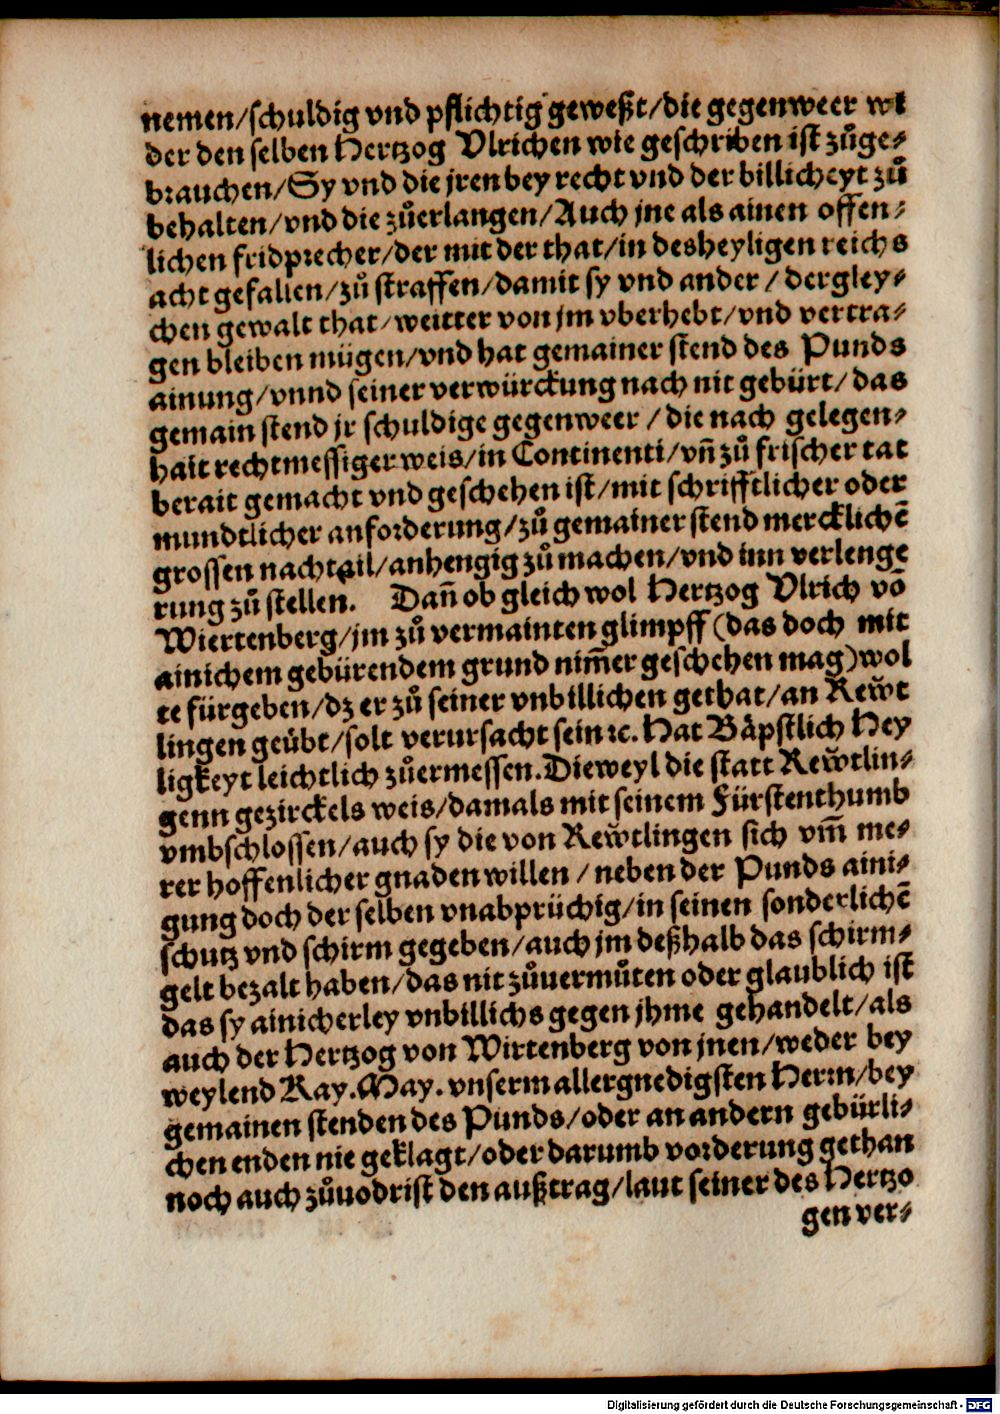 nemen/schuldig vnd pflichtig geweßt/die gegenweer wi
der den selben Hertzog Vlrichen wie geschriben ist zůge⸗
brauchen/Sy vnd die jren bey recht vnd der billicheyt zů
behalten/vnd die zůerlangen/Auch jne als ainen offen⸗
lichen fridprecher/der mit der that/in desheyligen reichs
acht gefallen/zů straffen/damit sy vnd ander/dergley⸗
chen gewalt that/weitter von jm vberhebt/vnd vertra⸗
gen bleiben mügen/vnd hat gemainer stend des Punds
ainung/vnnd seiner verwürckung nach nit gebürt/das
gemain stend jr schuldige gegenweer/die nach gelegen⸗
hait rechtmessiger weis/in Continenti/vn̄ zů frischer tat
berait gemacht vnd geschehen ist/mit schrifftlicher oder
mundtlicher anforderung/zů gemainer stend mercklichē
grossen nachtail/anhengig zů machen/vnd inn verlenge
rung zů stellen. Dan̄ ob gleich wol Hertzog Vlrich vō
Wiertenberg/jm zů vermainten glimpff (das doch mit
ainichem gebürendem grund nim̄er geschehen mag) wol
te fürgeben/dz er zů seiner vnbillichen gethat/an Rew̌t
lingen geu̇bt/solt verursacht sein ꝛc. Hat Bäpstlich Hey
ligkeyt leichtlich zůermessen. Dieweyl die statt Rew̌tlin⸗
genn gezirckels weis/damals mit seinem Fürstenthumb
vmbschlossen/auch sy die von Rew̌tlingen sich vm̄ me⸗
rer hoffenlicher gnaden willen/neben der Punds aini⸗
gung doch der selben vnabprüchig/in seinen sonderlichē
schutz vnd schirm gegeben/auch jm deßhalb das schirm⸗
gelt bezalt haben/das nit zůuermůten oder glaublich ist
das sy ainicherley vnbillichs gegen jhme gehandelt/als
auch der Hertzog von Wirtenberg von jnen/weder bey
weylend Kay. May. vnserm allergnedigsten Herrn/bey
gemainen stenden des Punds/oder an andern gebürli⸗
chen enden nie geklagt/oder darumb vorderung gethan
noch auch zůuodrist den außtrag/laut seiner des Hertzo
gen ver⸗
Digitalisierung gefördert durch die Deutsche Forschungsgemeinschaft - DFG